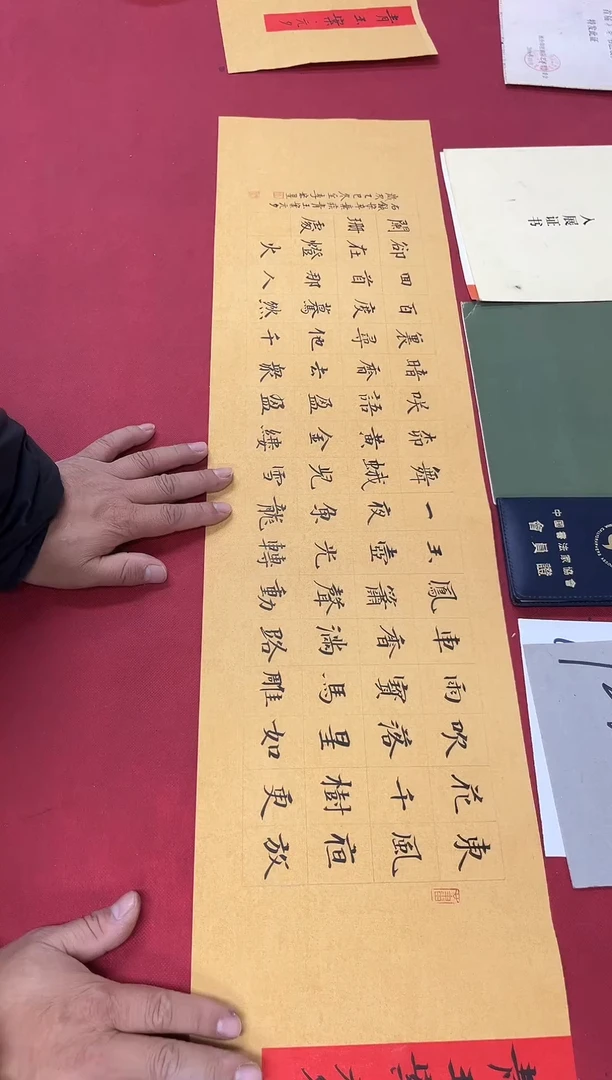 青玉案 元夕
特发此证
入展证书
中國書法家協會
會員證
東風夜放
花千樹更
吹落星如
雨寶馬雕
車香滿路
鳳簫聲動
玉壺光轉
一夜魚龍
舞蛾兒雪
柳黃金縷
笑語盈盈
暗香去眾
裏尋他千
百度驀然
回首那人
卻在燈火
闌珊處
青玉案